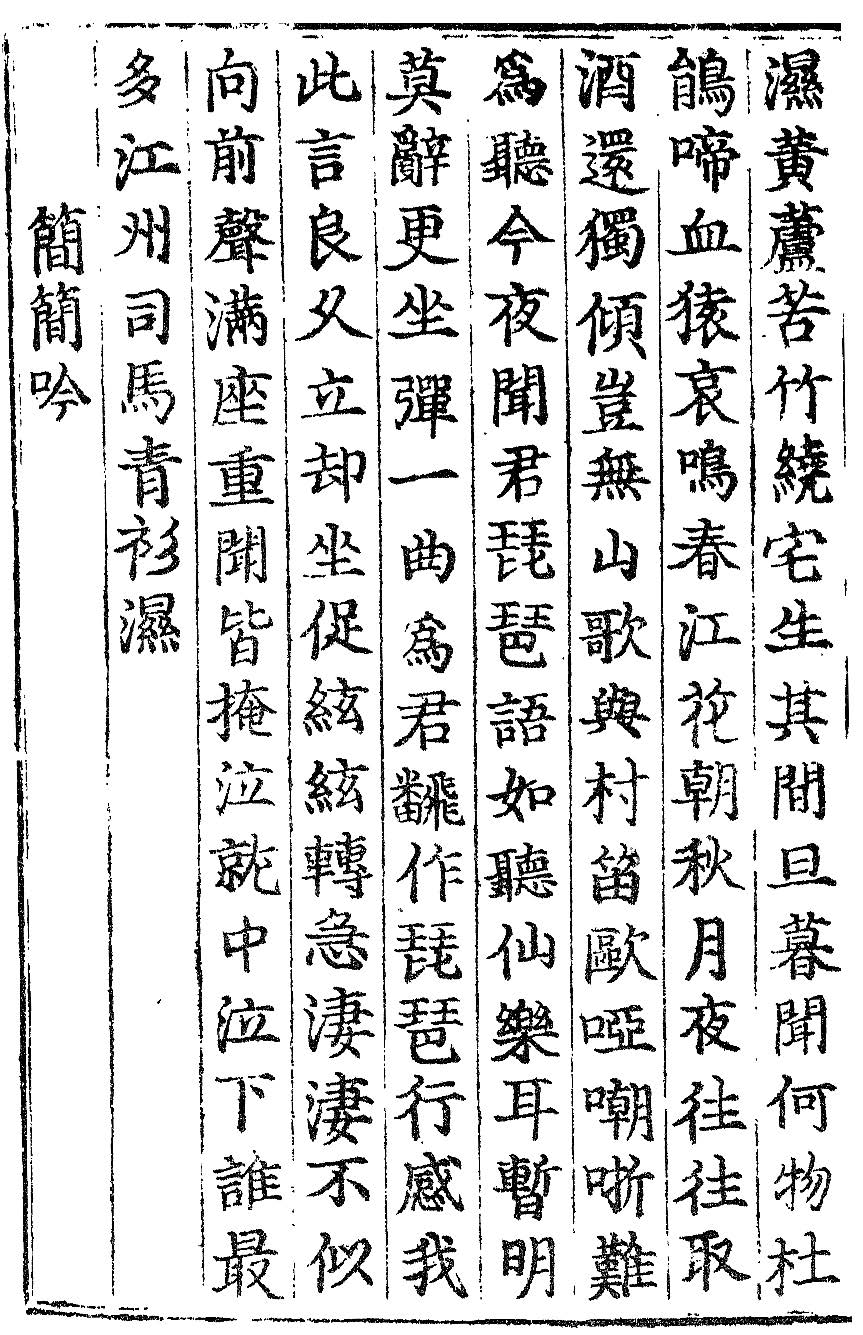 濕黃蘆苦竹繞宅生其間旦暮聞何物杜
鵑啼血猿哀鳴春江花朝秋月夜往往取
酒還獨傾豈無山歌與村笛歐啞嘲哳難
爲聽今夜聞君琵琶語如聽仙樂耳暫明
莫辭更坐彈一曲爲君飜作琵琶行感我
此言良久立却坐促絃絃轉急淒淒不似
向前聲滿座重聞皆掩泣就中泣下誰最
多江州司馬青衫濕
簡簡吟